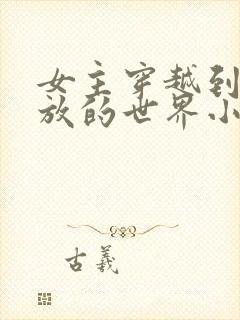 女主穿越到
放的世界小
古羲